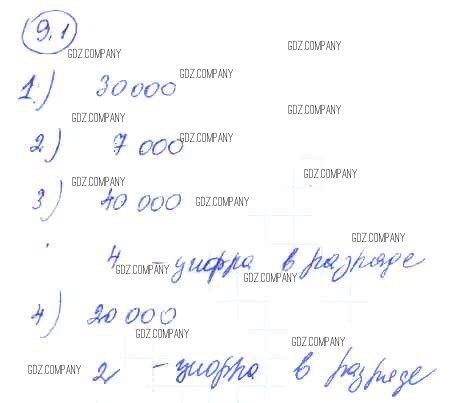 9.1
GDZ.COMPANY GDZ.COMPANY
1) 30000 GDZ.COMPANY
GDZ.COMPANY GDZ.COMPANY
2) 7 000 GDZ.COMPANY
GDZ.COMPANY GDZ.COMPANY
3) 40 000 GDZ.COMPANY
GDZ.COMPANY
4 - цифра в разряде
GDZ.COMPANY GDZ.COMPANY
4) 20 000
GDZ.COMPANY GDZ.COMPANY
GDZ.COMPANY 2 - цифра в разряде